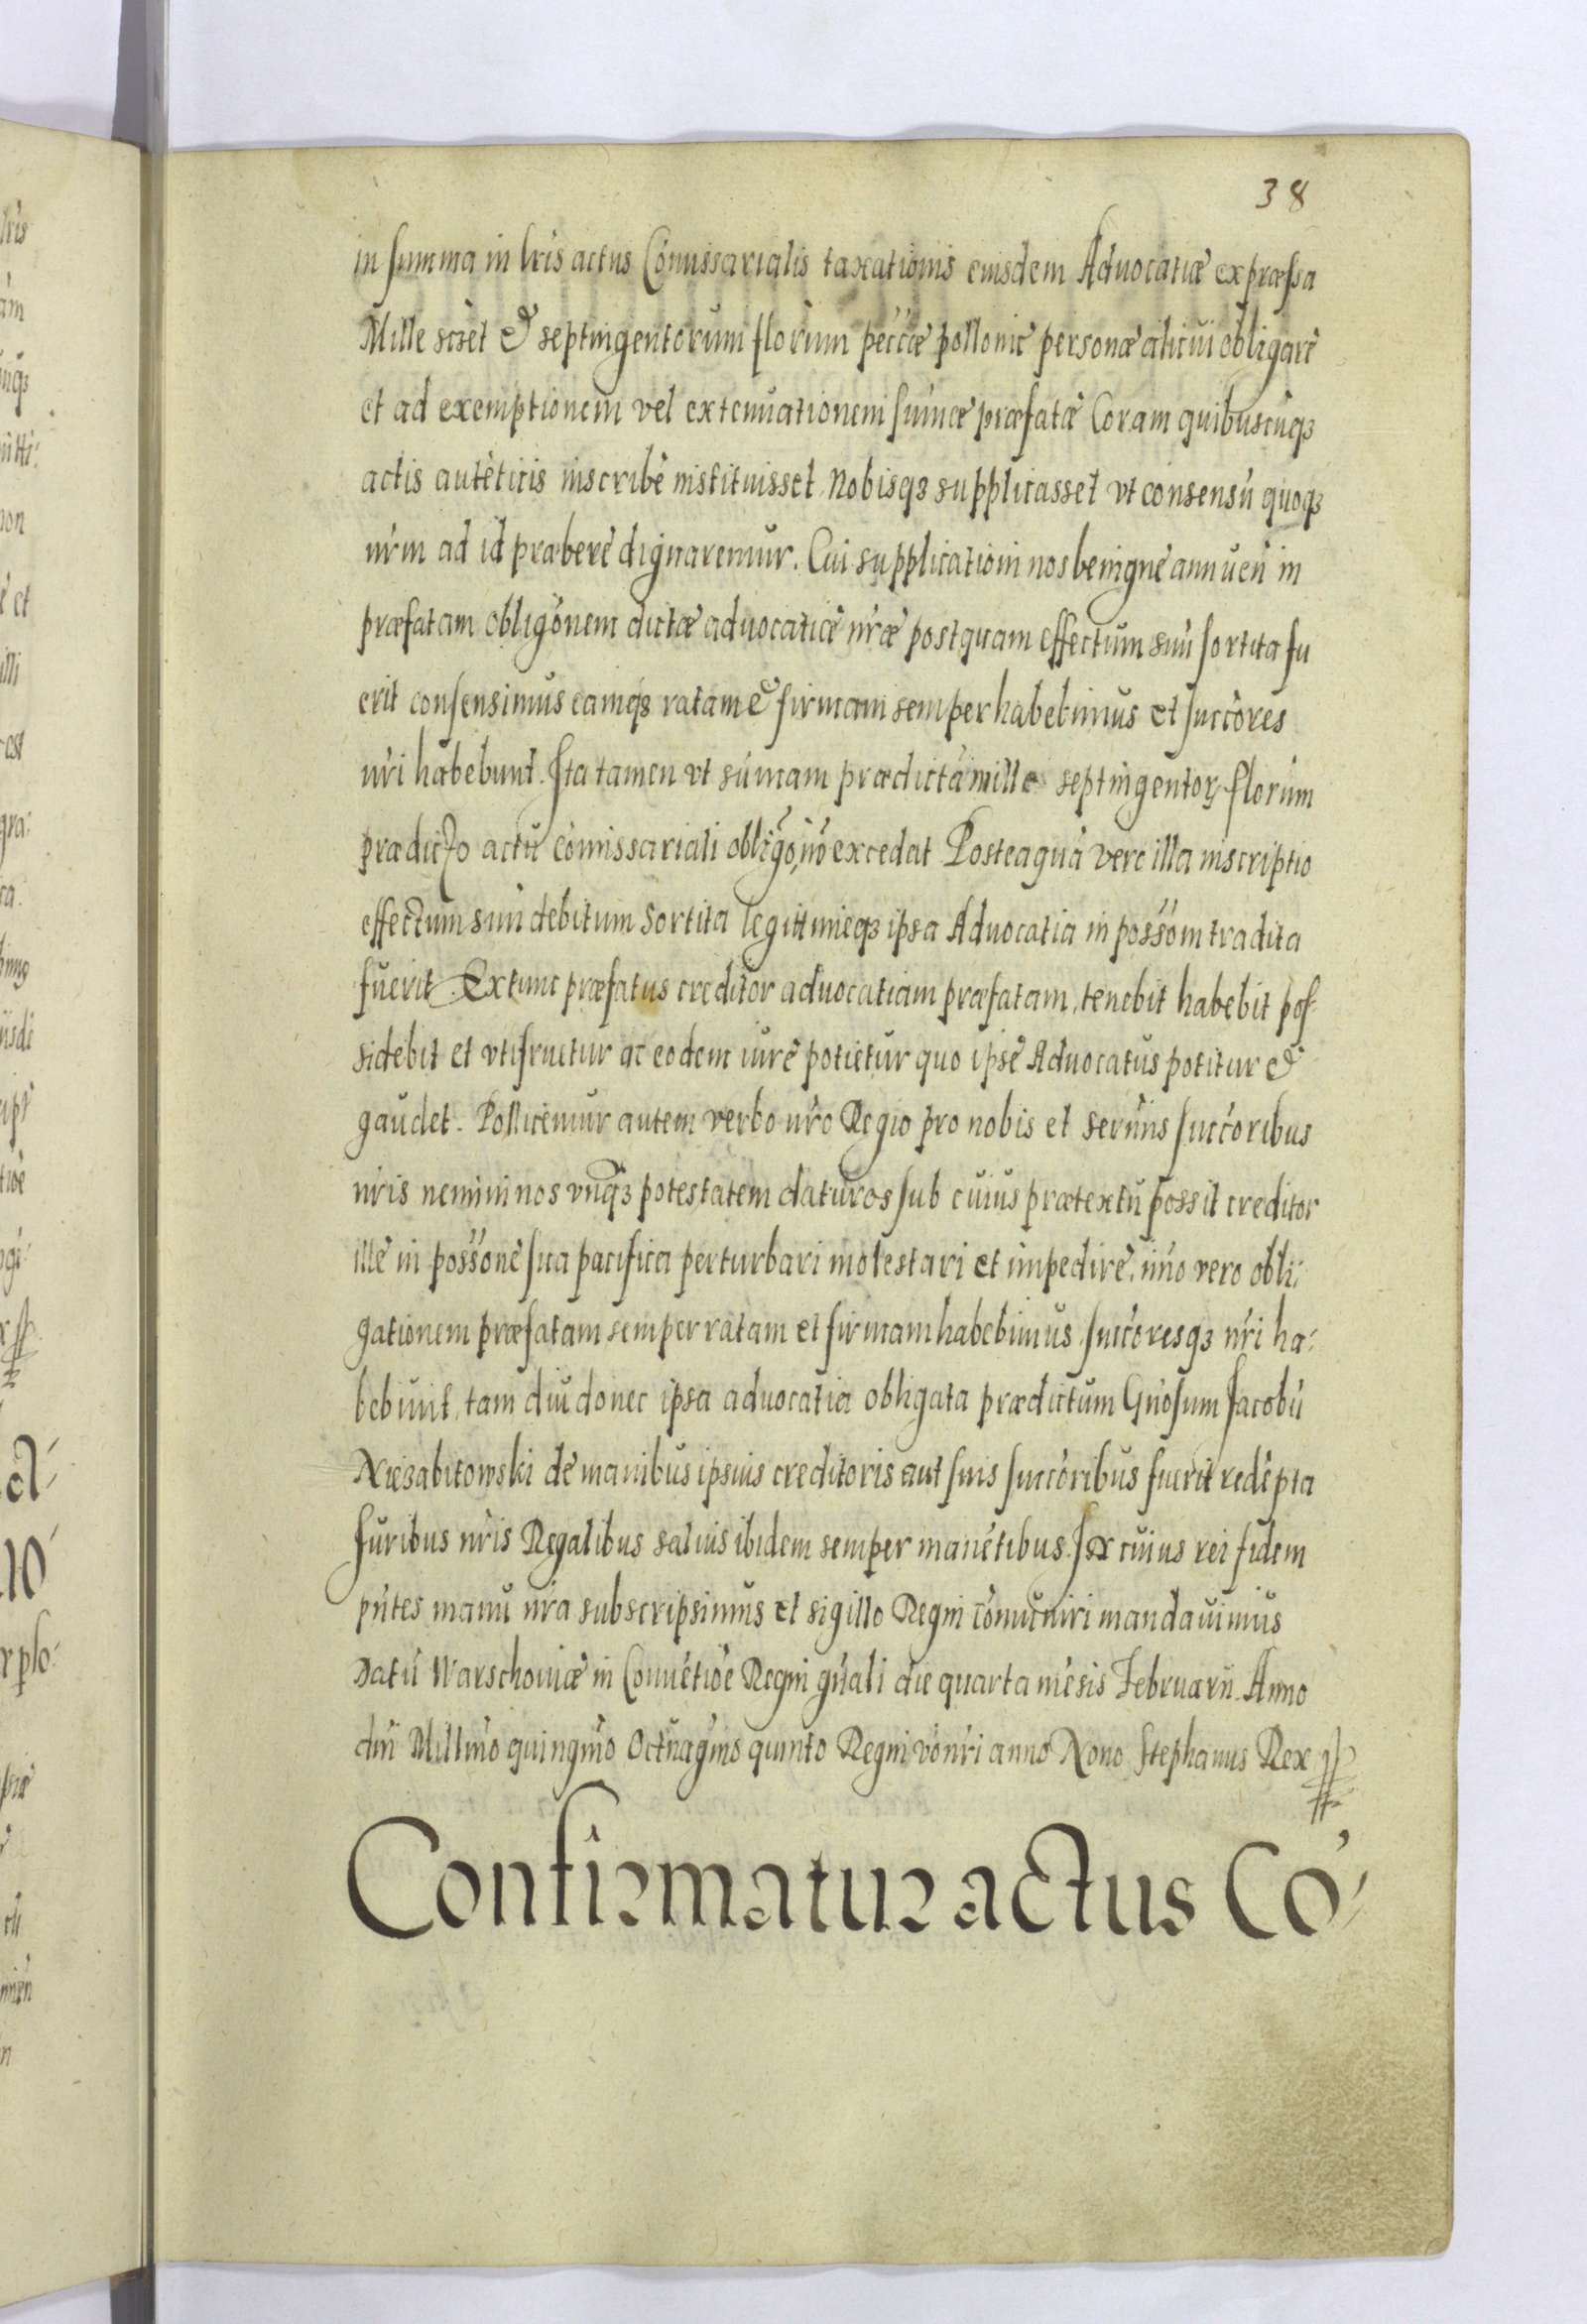 38
in summa in lris actus Comissarialis taxationis eiusdem Advocatiæ expræssa
Mille sciet & septingentorum florinn peccæ pollonic personæ alicui obligare
et ad exemptionem vel extenuationem sumæ præfatæ Coram quibuscuqꝫ
actis auteticis inscribe instituisset. Nobisqꝫ supplicasset vt consensu quoqꝫ
nrm ad id præbere dignaremur. Cui supplicationi nos benigne annuen in
præfatam obligonem dictæ aduocatiæ nræ postquam effectum suu sortita fu
erit consensimus eamqꝫ ratam & firmam semper habebimus et succores
nri habebunt. Ita tamen vt sumam prædicta mille septingentorꝫ florinn
prædicto actu comissariali obligo, no excedat Posteaqua vero illa inscriptio
effectum suu debitum sortita legittimeqꝫ ipsa Aduocatia in possom tradita
fuerit. Extunc præfatus creditor aduocatiam præfatam, tenebit habebit pos-
sidebit et vtifruetur ac eodem iure potietur quo ipse Aduocatus potitur &
gaudet. Pollicemur autem verbo nro Regio pro nobis et sernis succoribus
nris nemini nos vnqꝫ potestatem daturos sub cuius prætextu possit creditor
ille in possone sua pacifica perturbari molestari et impedire, imo vero obli:
gationem præfatam semper ratam et firmam habebimus, succoresqꝫ nri ha:
bebunt, tam diu donec ipsa aduocatia obligata prædictum Gnosum Jacobu
Niezabitowski de manibus ipsius creditoris aut suis succoribus fuerit redepta
Juribus nris Regalibus saluis ibidem semper manetibus. In cuius rei fidem
pntes manu nra subscripsimus et sigillo Regni comuniri mandauimus
Datu Warschouiæ in Conuetioe Regni gnali die quarta mesis Februarii. Anno
dni Millmo quingmo Octuagmo quinto Regni vo nri anno Nono Stephanus Rex
Confirmatur actus Co-